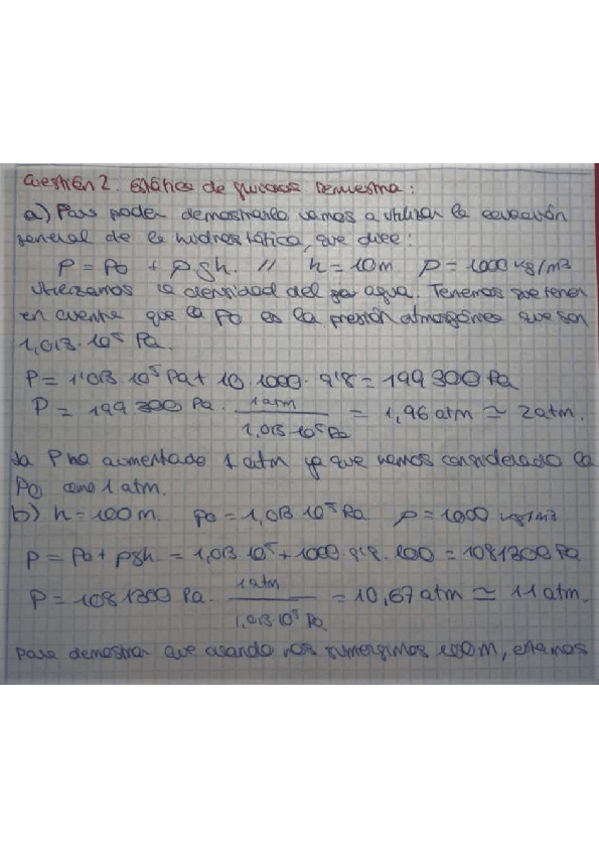 Cuestión 2. Estática de fluidos Demuestra:
a) Para poder demostrarlo vamos a utilizar la ecuación
general de la hidrostática, que dice:
P = P0 + ρgh. // h = 10m ρ = 1000 kg/m3
Utilizamos la densidad del agua. Tenemos que tener
en cuenta que la P0 es la presión atmosférica que son
1,013·10⁵ Pa.
P = 1'013 10⁵ Pa + 10·1000·9'8 = 199 300 Pa
P = 199 300 Pa · 1 atm / 1,013·10⁵ Pa = 1,96 atm ≃ 2 atm.
La P ha aumentado 1 atm ya que hemos considerado la
P0 como 1 atm.
b) h = 100m. P0 = 1,013·10⁵ Pa ρ = 1000 kg/m3
P = P0 + ρgh. = 1,013·10⁵ + 1000·9'8·100 = 1081300 Pa
P = 1081300 Pa · 1 atm / 1,013·10⁵ Pa = 10,67 atm ≃ 11 atm.
Para demostrar que cuando nos sumergimos 100m, estamos